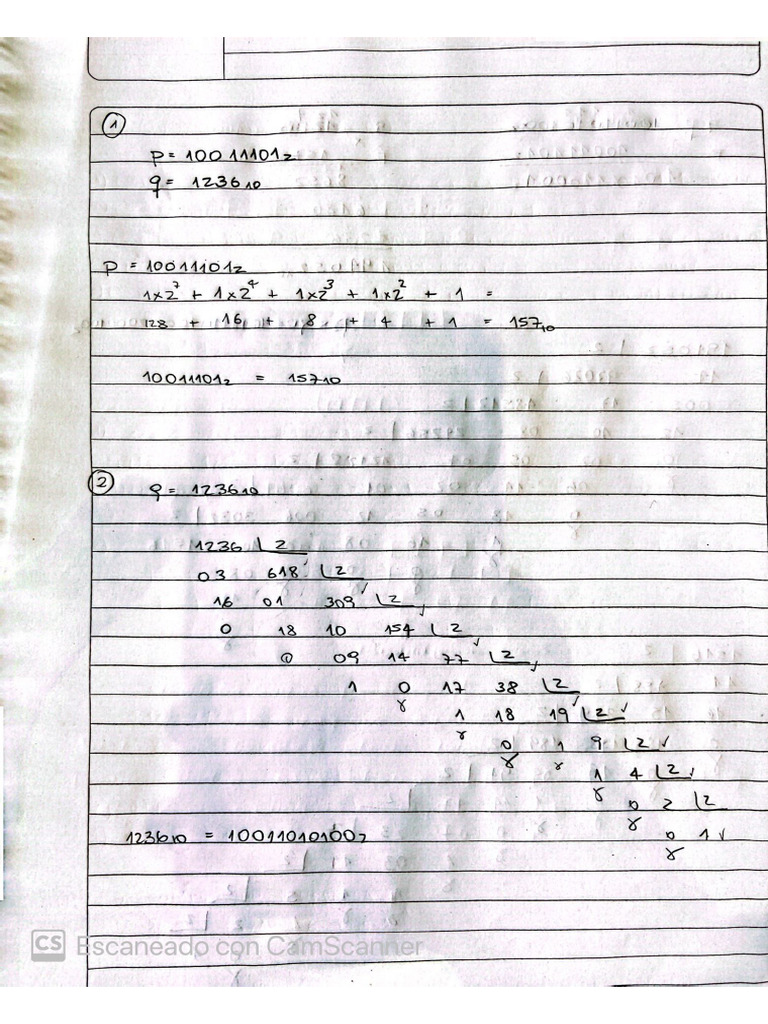 1
p = 10011101₂
q = 1236₁₀
p = 10011101₂
1x2⁷ + 1x2⁴ + 1x2³ + 1x2² + 1 =
128 + 16 + 8 + 4 + 1 = 157₁₀
10011101₂ = 157₁₀
2
q = 1236₁₀
1236 2
03 618 2
16 01 309 2
0 18 10 154 2
0 09 14 77 2
1 0 17 38 2
1 18 19 2
0 1 9 2
1 4 2
0 2 2
0 1
1236₁₀ = 10011010100₂
CS Escaneado con CamScanner